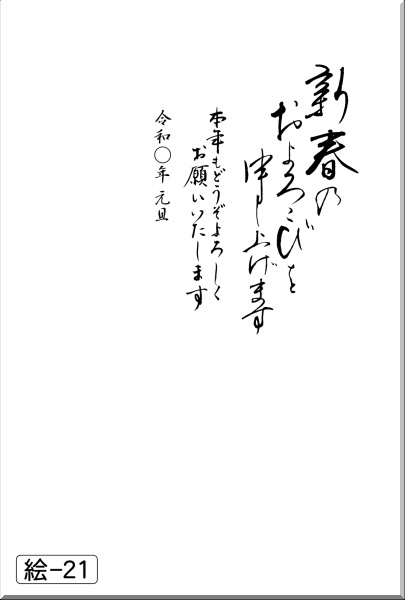 新春の
およろこびを
申し上げます
本年もどうぞよろしく
お願いいたします
令和〇年 元旦
絵-21